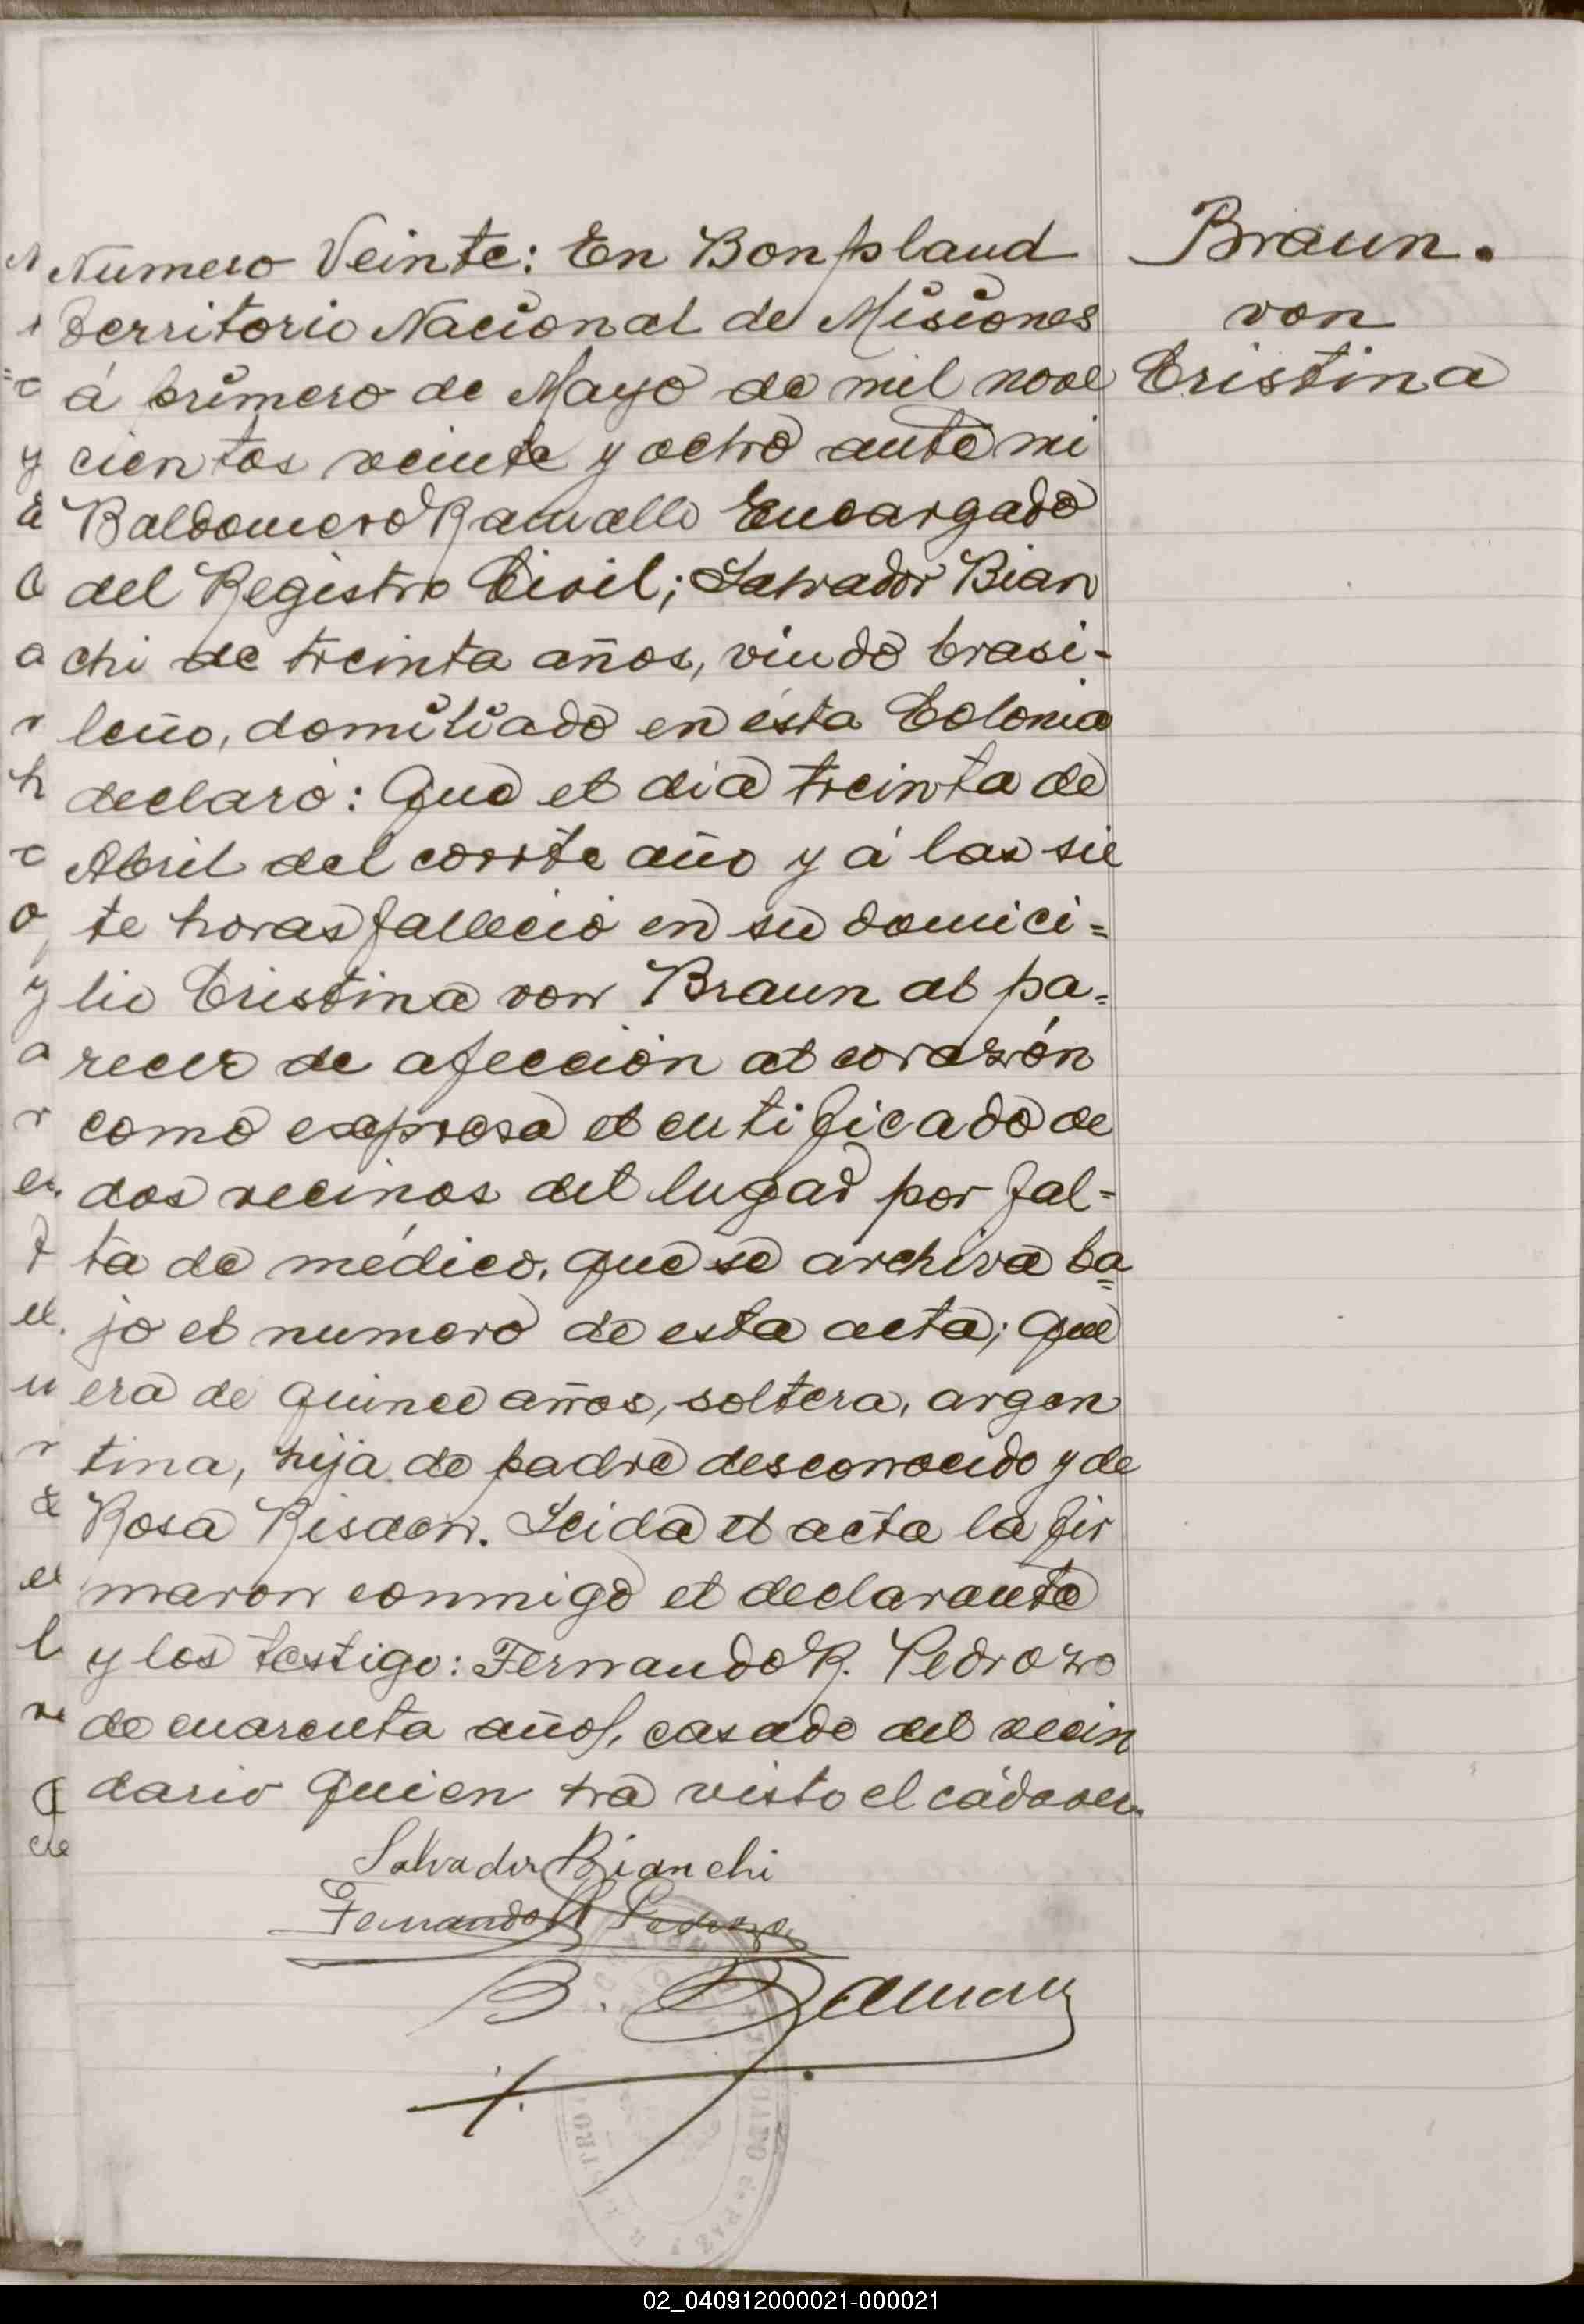 Braun.
von
Cristina
Numero Veinte: En Bonpland
Territorio Nacional de Misiones
á primero de Mayo de mil nove
cientos veinte y ocho ante mi
Baldomero Ramallo Encargado
del Registro Civil; Salvador Bian
chi de treinta años, viudo brasi-
leño, domiliado en ésta Colonia
declaró: Que el dia treinta de
Abril del corrte año y á las sie
te horas falleció en su domici=
lio Cristina von Braun al pa=
recer de afección al corazón
como expresa el certificado de
dos vecinos del lugar por fal=
ta de médico, que se archiva ba=
jo el numero de esta acta; que
era de quince años, soltera, argen
tina, hija de padre desconocido y de
Rosa Risdon. Leida el acta la fir
maron conmigo el declarante
y los testigo: Fernando R. Pedrozo
de cuarenta años, casado del vecin
dario quien ha visto el cádaver.
Salvador Bianchi
Fernando R Pedrozo
B. Ramallo
02_040912000021-000021